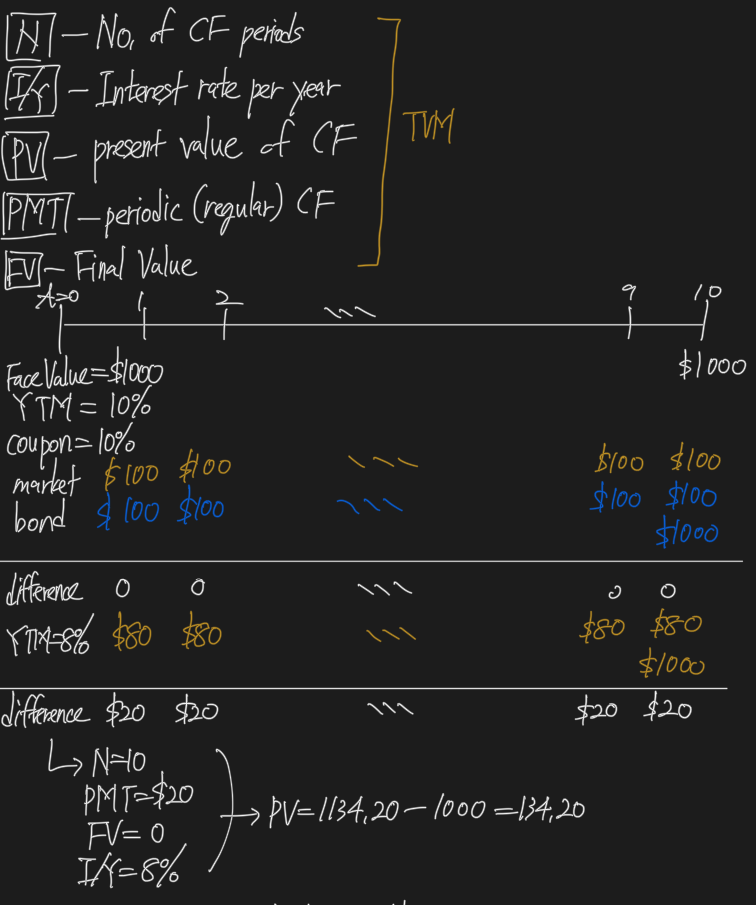 N — No. of CF periods
I/Y — Interest rate per year
PV — present value of CF
TVM
PMT — periodic (regular) CF
FV — Final Value
t=0 1 2 ... 9 10
$1000
Face Value = $1000
YTM = 10%
coupon = 10%
market $100 $100 ... $100 $100
bond $100 $100 ... $100 $100
$1000
difference 0 0 ... 0 0
YTM=8% $80 $80 ... $80 $80
$1000
difference $20 $20 ... $20 $20
↳ N=10
PMT=$20
→ PV=1134.20 — 1000 = 134.20
FV = 0
I/Y = 8%